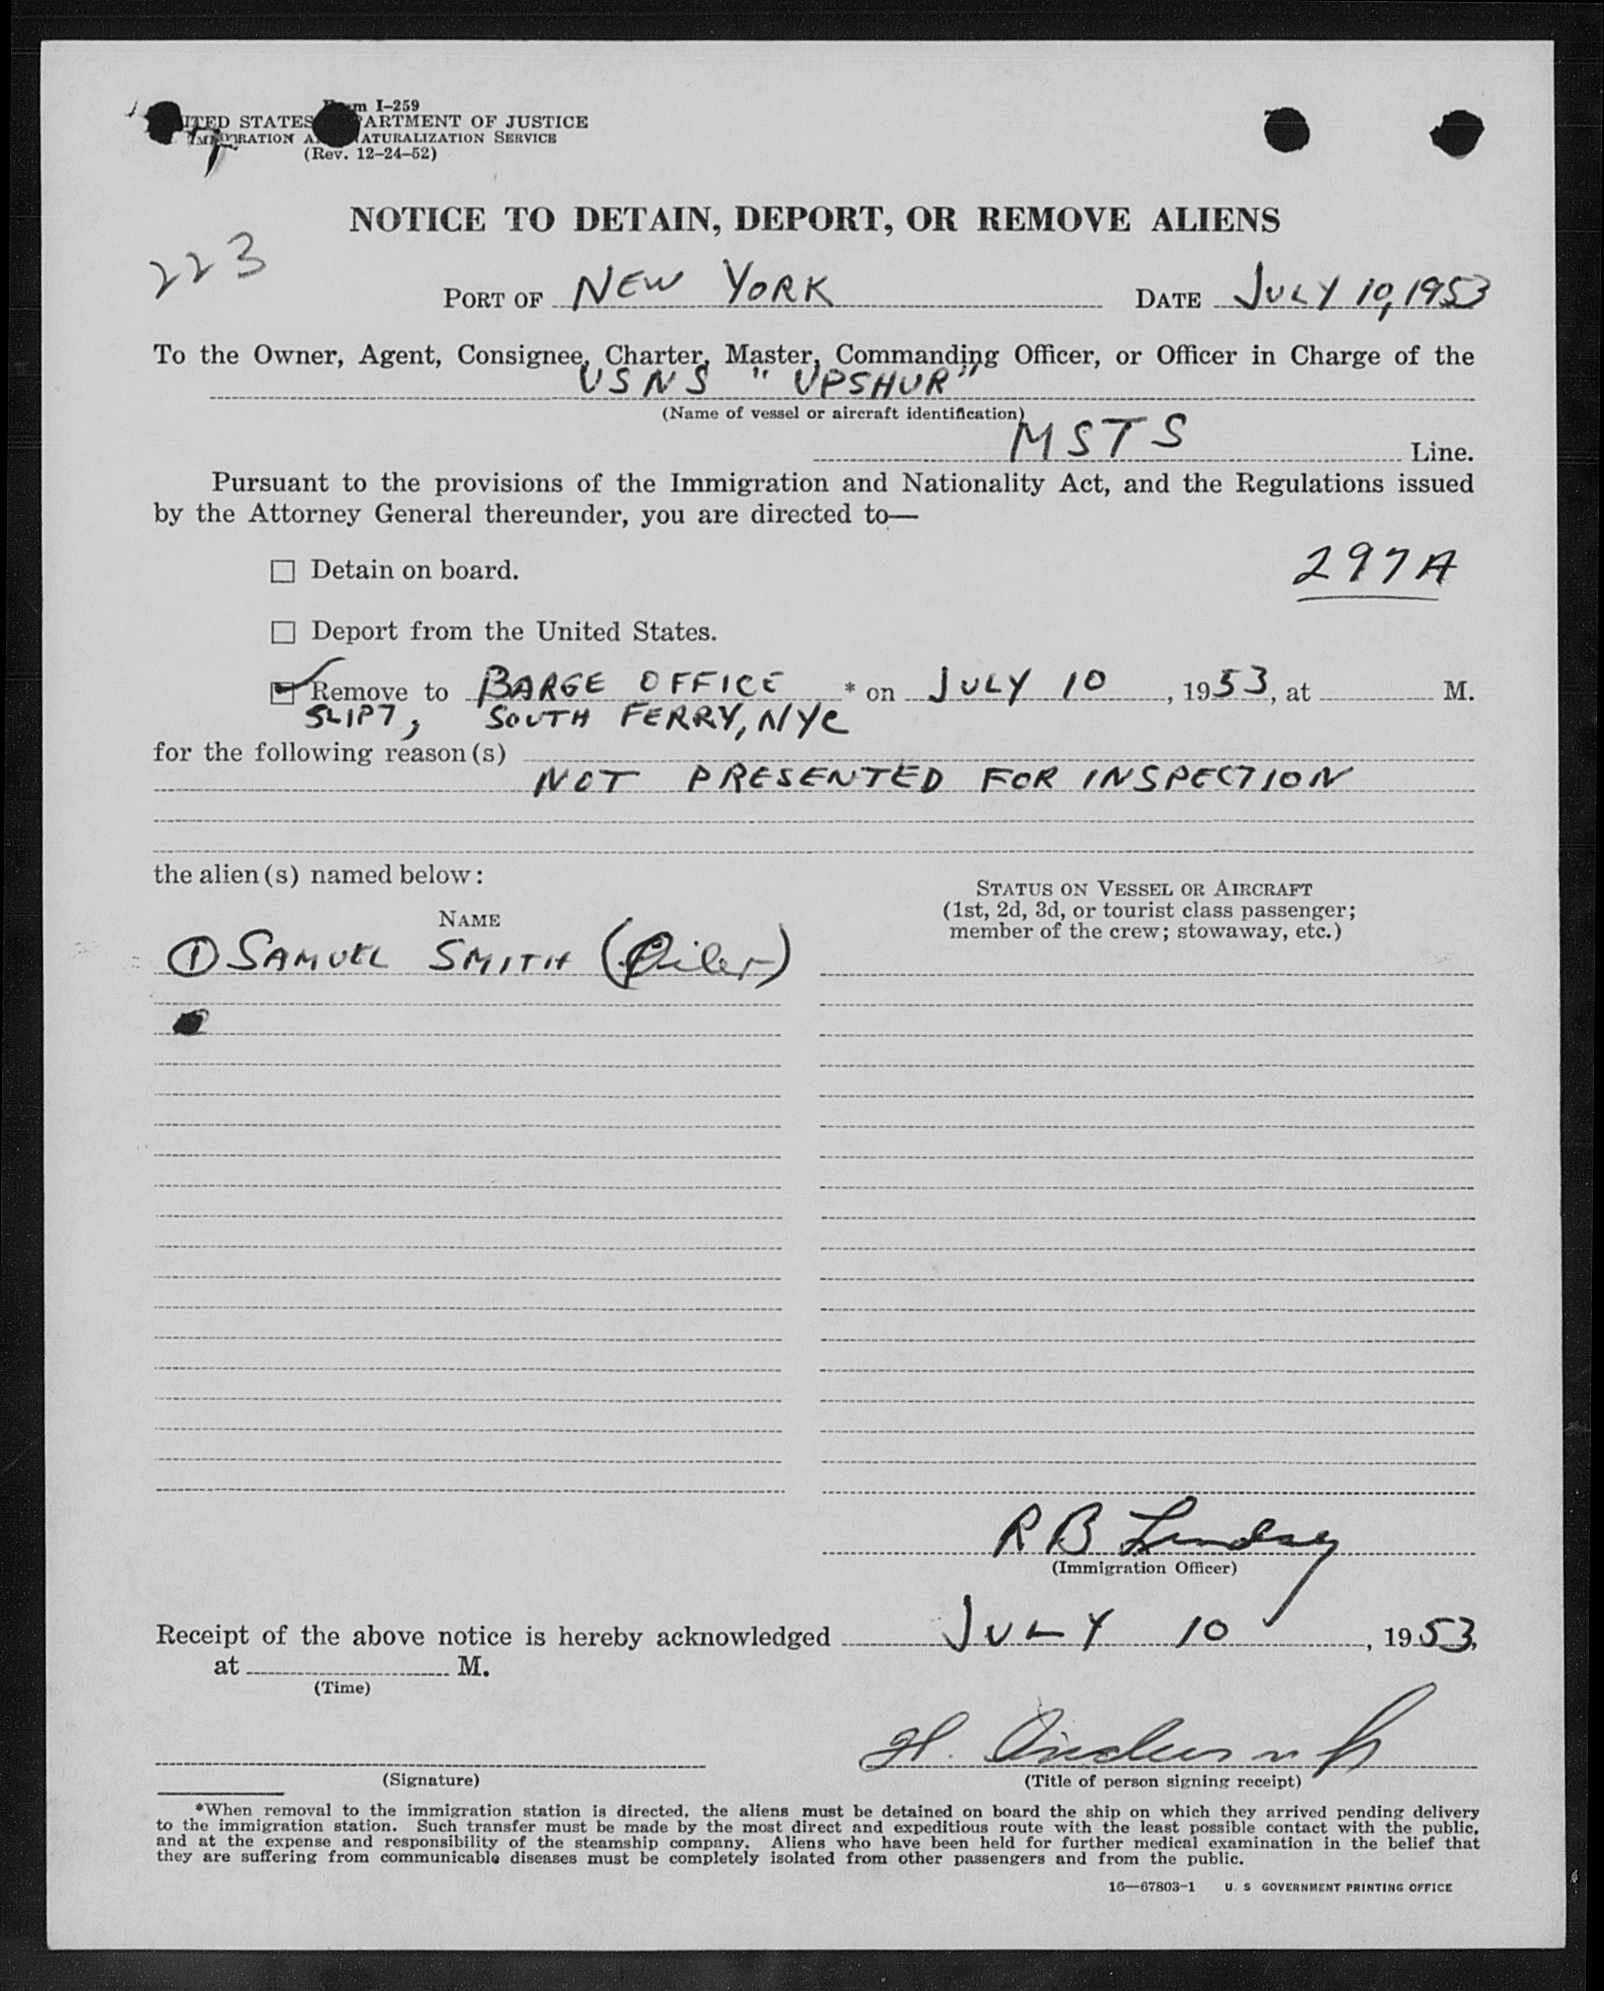 Form I-259
UNITED STATES DEPARTMENT OF JUSTICE
IMMIGRATION AND NATURALIZATION SERVICE
(Rev. 12-24-52)
NOTICE TO DETAIN, DEPORT, OR REMOVE ALIENS
223
PORT OF NEW YORK DATE JULY 10, 1953
To the Owner, Agent, Consignee, Charter, Master, Commanding Officer, or Officer in Charge of the
USNS "UPSHUR"
(Name of vessel or aircraft identification)
MSTS Line.
Pursuant to the provisions of the Immigration and Nationality Act, and the Regulations issued
by the Attorney General thereunder, you are directed to—
297A
☐ Detain on board.
☐ Deport from the United States.
☑ Remove to BARGE OFFICE * on JULY 10, 1953, at M.
SLIP 7, SOUTH FERRY, NYC
for the following reason(s)
NOT PRESENTED FOR INSPECTION
the alien(s) named below:
NAME
STATUS ON VESSEL OR AIRCRAFT
(1st, 2d, 3d, or tourist class passenger;
member of the crew; stowaway, etc.)
① SAMUEL SMITH (Oiler)
R B Lindsay
(Immigration Officer)
Receipt of the above notice is hereby acknowledged JULY 10, 1953,
at M.
(Time)
H.
(Signature)
(Title of person signing receipt)
*When removal to the immigration station is directed, the aliens must be detained on board the ship on which they arrived pending delivery
to the immigration station. Such transfer must be made by the most direct and expeditious route with the least possible contact with the public,
and at the expense and responsibility of the steamship company. Aliens who have been held for further medical examination in the belief that
they are suffering from communicable diseases must be completely isolated from other passengers and from the public.
16—67803-1 U. S. GOVERNMENT PRINTING OFFICE